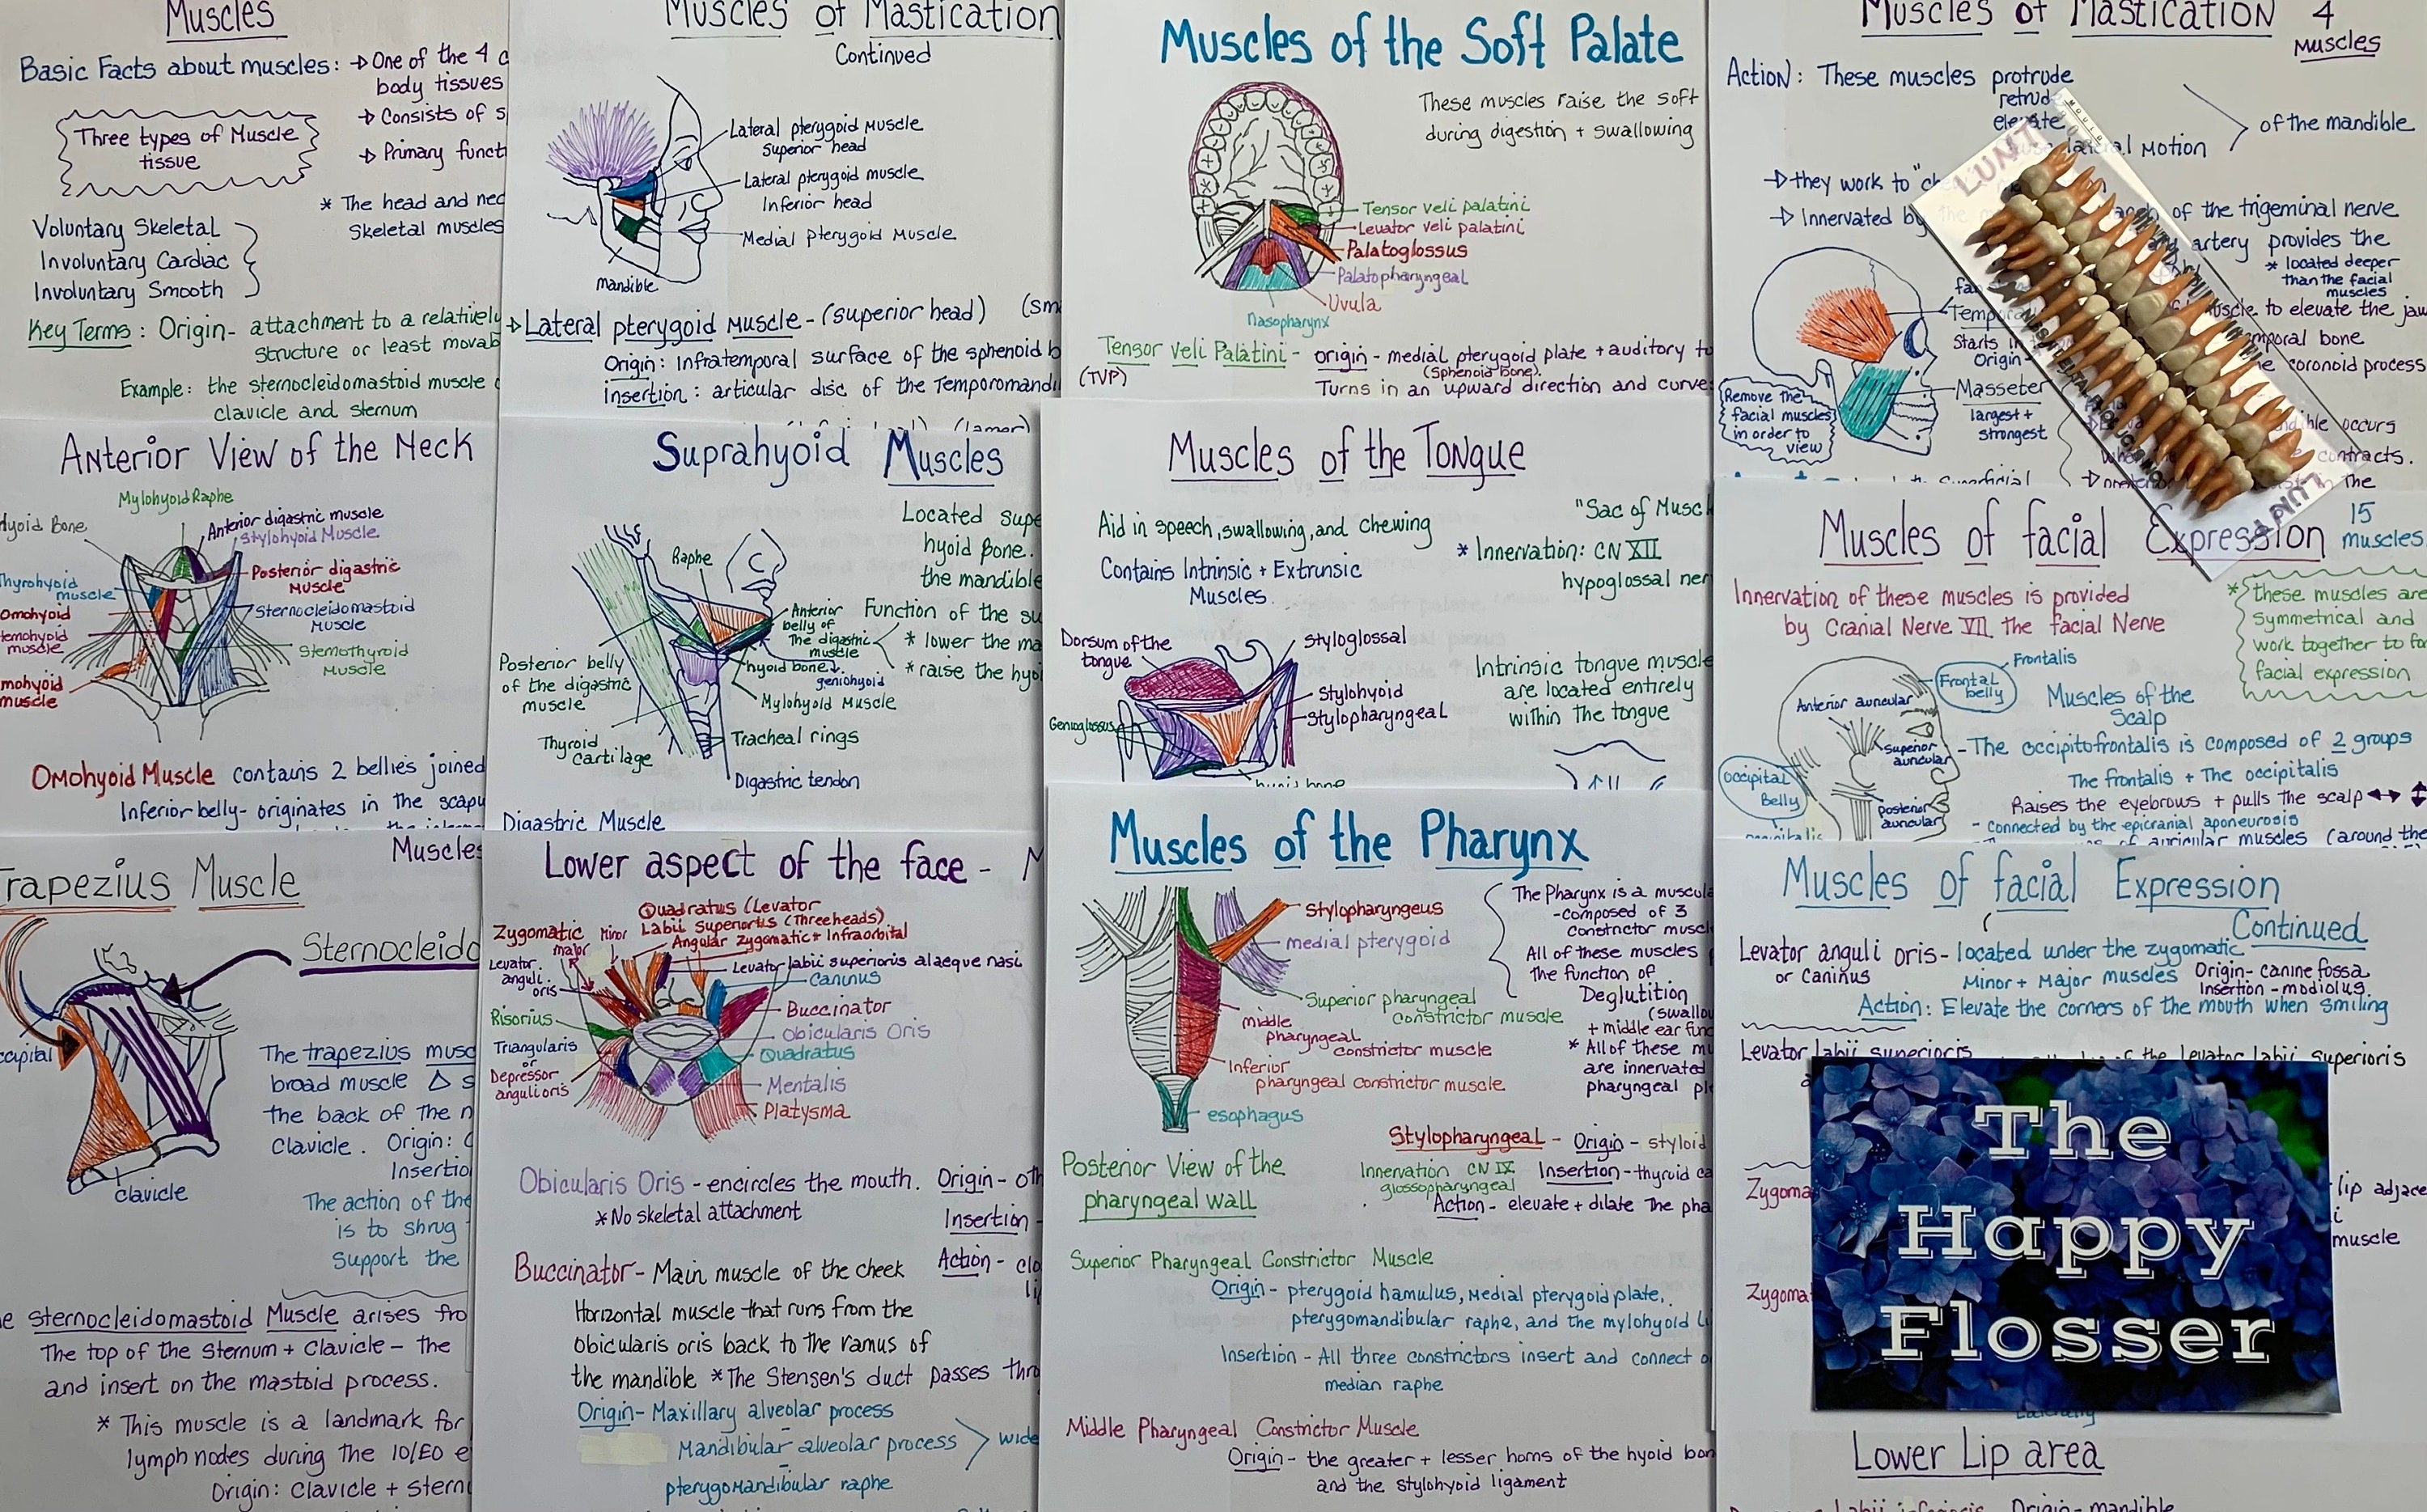 Muscles
Basic Facts about muscles: → One of the 4
body tissues
→ Consists of
→ Primary
Three types of Muscle
tissue
* The head and
Skeletal muscles
Voluntary Skeletal
Involuntary Cardiac
Involuntary Smooth
Key Terms: Origin- attachment to a relatively
structure or least
Example: the sternocleidomastoid muscle
clavicle and sternum
Muscles of Mastication
Continued
Lateral pterygoid muscle
Superior head
Lateral pterygoid muscle
Inferior head
Medial pterygoid Muscle
mandible
→ Lateral pterygoid muscle - (superior head)
Origin: Infratemporal surface of the sphenoid
insertion: articular disc of the
Muscles of the Soft Palate
These muscles raise the soft
during digestion + swallowing
Tensor veli palatini
Levator veli palatini
Palatoglossus
Palatopharyngeal
Uvula
Nasopharynx
Tensor Veli Palatini - origin - medial pterygoid plate + auditory
(TVP)
(sphenoid bone).
Turns in an upward direction and
Muscles of Mastication 4
Muscles
Action: These muscles protrude
elevate
lateral motion
of the mandible
→ they work to
→ Innervated by
of the trigeminal nerve
artery provides the
* located deeper
than the facial
muscles
muscle to elevate the jaw
bone
coronoid process
Starts in
Origin-
Masseter
largest +
strongest
Remove the
facial muscles
in order to
view
occurs
contracts.
the
LUNT
LUNT
Anterior View of the Neck
Mylohyoid Raphe
Bone
Anterior digastric muscle
Stylohyoid Muscle
Thyrohyoid
muscle
Posterior digastric
Muscle
Omohyoid
Sternocleidomastoid
Muscle
muscle
Sternothyroid
Muscle
muscle
Omohyoid Muscle contains 2 bellies joined
Inferior belly- originates in the
Suprahyoid Muscles
Located
hyoid Bone.
the mandible
Raphe
Anterior
belly of
The digastric
muscle
Function of the
* lower the
* raise the
hyoid bone
geniohyoid
Posterior belly
of the digastric
muscle
Mylohyoid Muscle
Thyroid
Cartilage
Tracheal rings
Digastric tendon
Digastric Muscle
Muscles of the Tongue
Aid in speech, swallowing, and chewing
"Sac of
Contains Intrinsic + Extrinsic
Muscles.
* Innervation: CN XII
hypoglossal
Dorsum of the
tongue
Styloglossal
Stylohyoid
Stylopharyngeal
Genioglossus
Intrinsic tongue
are located entirely
within the tongue
Muscles of facial Expression 15
muscles
Innervation of these muscles is provided
by Cranial Nerve VII The facial Nerve
* these muscles are
Symmetrical and
work together to
facial expression
Frontalis
Frontal
belly
Anterior auricular
Superior
auricular
Posterior
auricular
Occipital
Belly
Muscles of the
Scalp
- The occipitofrontalis is composed of 2 groups
The frontalis + The occipitalis
Raises the eyebrows + pulls the scalp
- Connected by the epicranial aponeurosis
of auricular muscles (around the
Muscles
Trapezius Muscle
clavicle
The trapezius
broad muscle
the back of the
Clavicle. Origin:
The action of the
is to shrug
Support the
sternocleidomastoid Muscle arises
The top of the Sternum + Clavicle - The
and insert on the mastoid process.
* This muscle is a landmark for
lymph nodes during the IO/EO
Origin: Clavicle +
Lower aspect of the face -
Quadratus (Levator
Labii Superioris (Three heads)
Angular Zygomatic + Infraorbital
Zygomatic
major
Minor
Levator
anguli
oris
Levator labii superioris alaeque nasi
Caninus
Buccinator
Risorius
Obicularis Oris
Triangularis
or
Depressor
anguli oris
Quadratus
Mentalis
Platysma
Obicularis Oris - encircles the mouth. Origin-
*No skeletal attachment
Insertion -
Action -
Buccinator- Main muscle of the cheek
Horizontal muscle that runs from the
Obicularis oris back to the ramus of
the mandible *The Stensen's duct passes
Origin- Maxillary alveolar process
Mandibular alveolar process
pterygomandibular raphe
Muscles of the Pharynx
Stylopharyngeus
medial pterygoid
Superior pharyngeal
constrictor muscle
middle
pharyngeal
constrictor muscle
Inferior
pharyngeal constrictor muscle
esophagus
The Pharynx is a
-composed of 3
constrictor
All of these muscles
The function of
Deglutition
+ middle ear
* All of these
are innervated
pharyngeal
Posterior View of the
pharyngeal wall
Stylopharyngeal - Origin - styloid
Innervation CN IX
glossopharyngeal
Insertion - thyroid
Action - elevate + dilate The
Superior Pharyngeal Constrictor Muscle
Origin - pterygoid hamulus, Medial pterygoid plate,
pterygomandibular raphe, and the mylohyoid
Insertion - All three constrictors insert and connect
median raphe
Middle Pharyngeal Constrictor Muscle
Origin - the greater + lesser horns of the hyoid
and the stylohyoid ligament
Muscles of facial Expression
Continued
Levator anguli oris - located under the zygomatic
or Caninus
Minor + Major muscles
Origin- canine fossa
Insertion - modiolus
Action: Elevate the corners of the mouth when smiling
Levator labii superioris
the Levator labii superioris
lip
muscle
The
Happy
Flosser
Lower Lip area
Origin- mandible